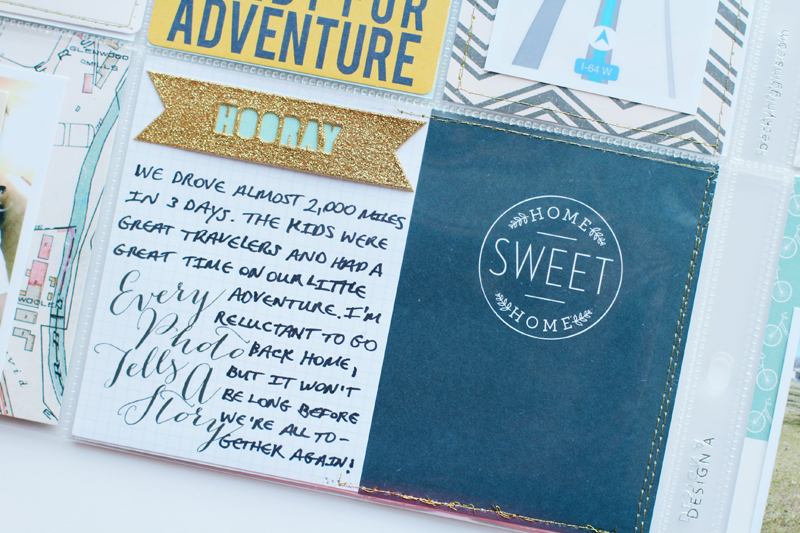 ADVENTURE
GLENWOOD
MILLS
I-64 W
HOORAY
WE DROVE ALMOST 2,000 MILES
IN 3 DAYS. THE KIDS WERE
GREAT TRAVELERS AND HAD A
GREAT TIME ON OUR LITTLE
ADVENTURE. I'M
RELUCTANT TO GO
BACK HOME,
BUT IT WON'T
BE LONG BEFORE
WE'RE ALL TO-
GETHER AGAIN!
Every
Photo
Tells A
Story
HOME
SWEET
HOME
DESIGN A